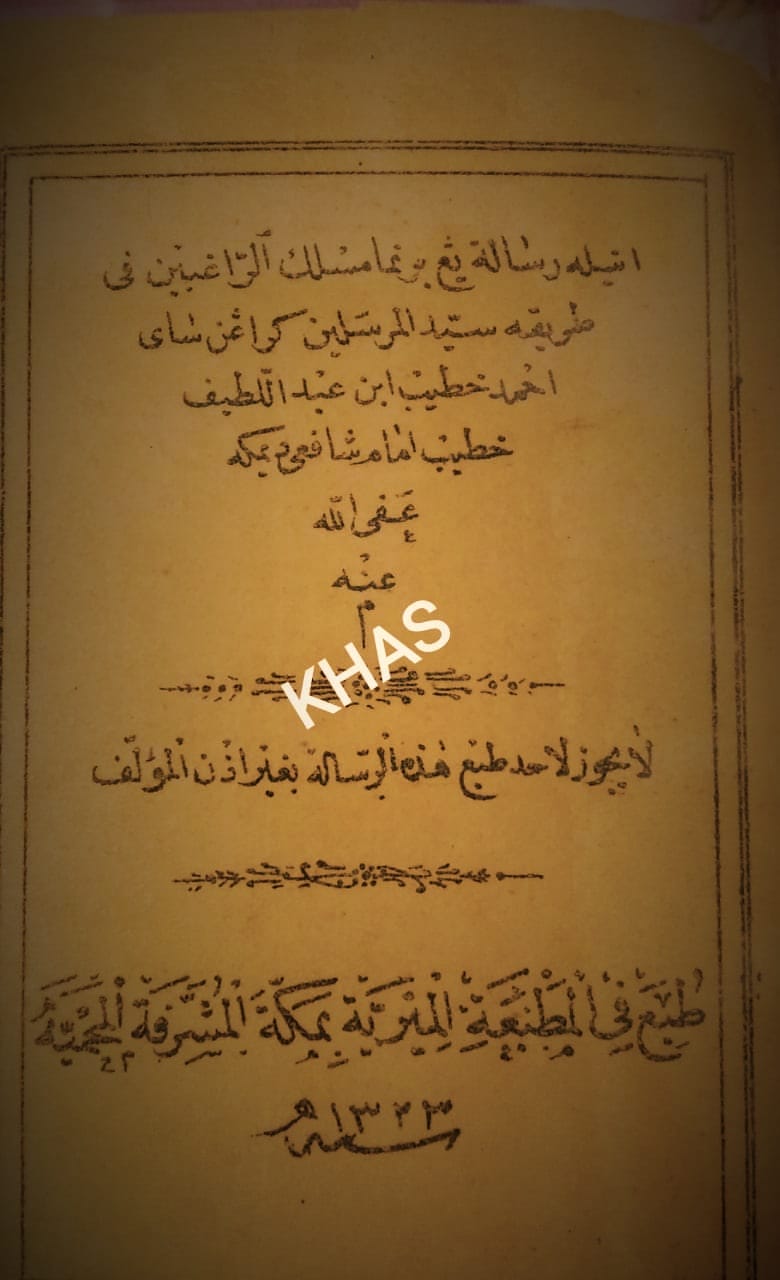 اتيله رسالة يڠ بونما مسلك الرّاغبين فى
طريقه سيّد المرسلين كراڠن ساى
احمد خطيب ابن عبد اللّطيف
خطيب امام شافعى د مكه
عفى الله
عنه
م
KHAS
لا يجوز لاحد طبع هذه الرّسالة بغير اذن المؤلّف
طُبِعَ فِي الْمَطْبَعَةِ الْمِيْرِيَّةِ بِمَكَّةَ الْمُشَرَّفَةِ الْمَحْمِيَّةْ
سنه ١٣٢٣ هـ